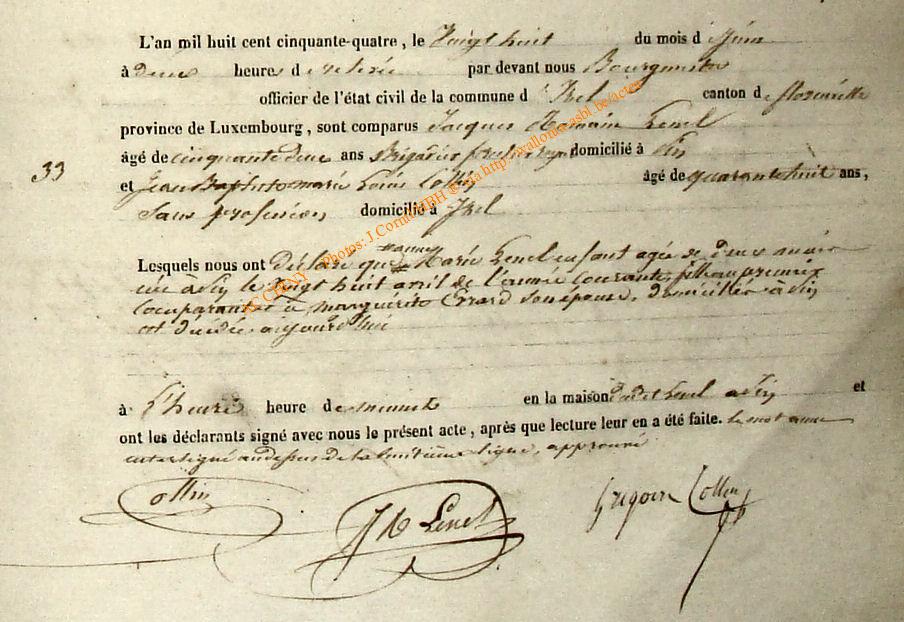 L'an mil huit cent cinquante-quatre, le Vingt huit du mois d Juin
à deux heures de relevée par devant nous Bourgmestre
officier de l'état civil de la commune d' Izel canton de florenville
province de Luxembourg, sont comparus Jacques Romain Lenel
33
âgé de cinquante deux ans Brigadier forestier domicilié à
et Jean Baptiste marie Louis Collin âgé de quarante huit ans,
Sans profession domicilié à Izel
anne
Lesquels nous ont déclaré que Marie Lenel enfant agée de deux mois
née à le vingt huit avril de l'année courante, fille au premier
comparant et à marguerite Erard son épouse, domiciliés à
est décédée aujourd'hui
à l'heure heure de minuit en la maison dudit Lenel à et
ont les déclarants signé avec nous le présent acte, après que lecture leur en a été faite. le mot anne
interligné au dessus de la huitième ligne, approuvé
Collin Lenel Grégoire Collin
CHINY Photos: J Cornu HBH © via http://wallonica-asbl.be/actes